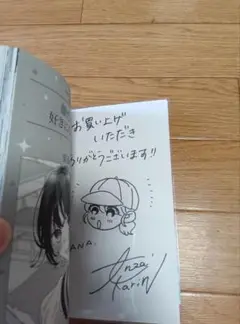 お買い上げ
いただき
ありがとうございます!!
ANA.
Anzai
Karin
好き